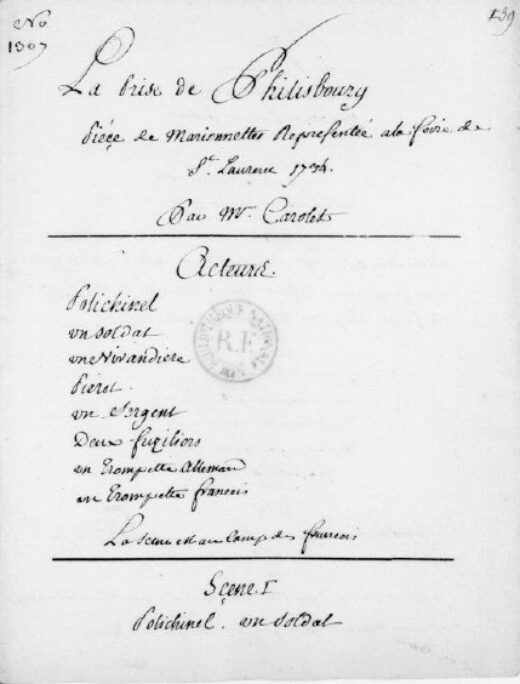 No
1307
139
La prise de Philisbourg
Piéçe de Marionnettes Représentée ala foire de
St. Laurence 1734.
Par Mr. Carolet
Acteurs.
Polichinel
un soldat
une Vivandiere
Pierot.
un Sergent
Deux fuziliers
un Trompette Alleman
un Trompette francois
La Scene est au Camp des francois
BIBLIOTHEQUE NATIONALE
R.F.
Sçene I
Polichinel. un soldat